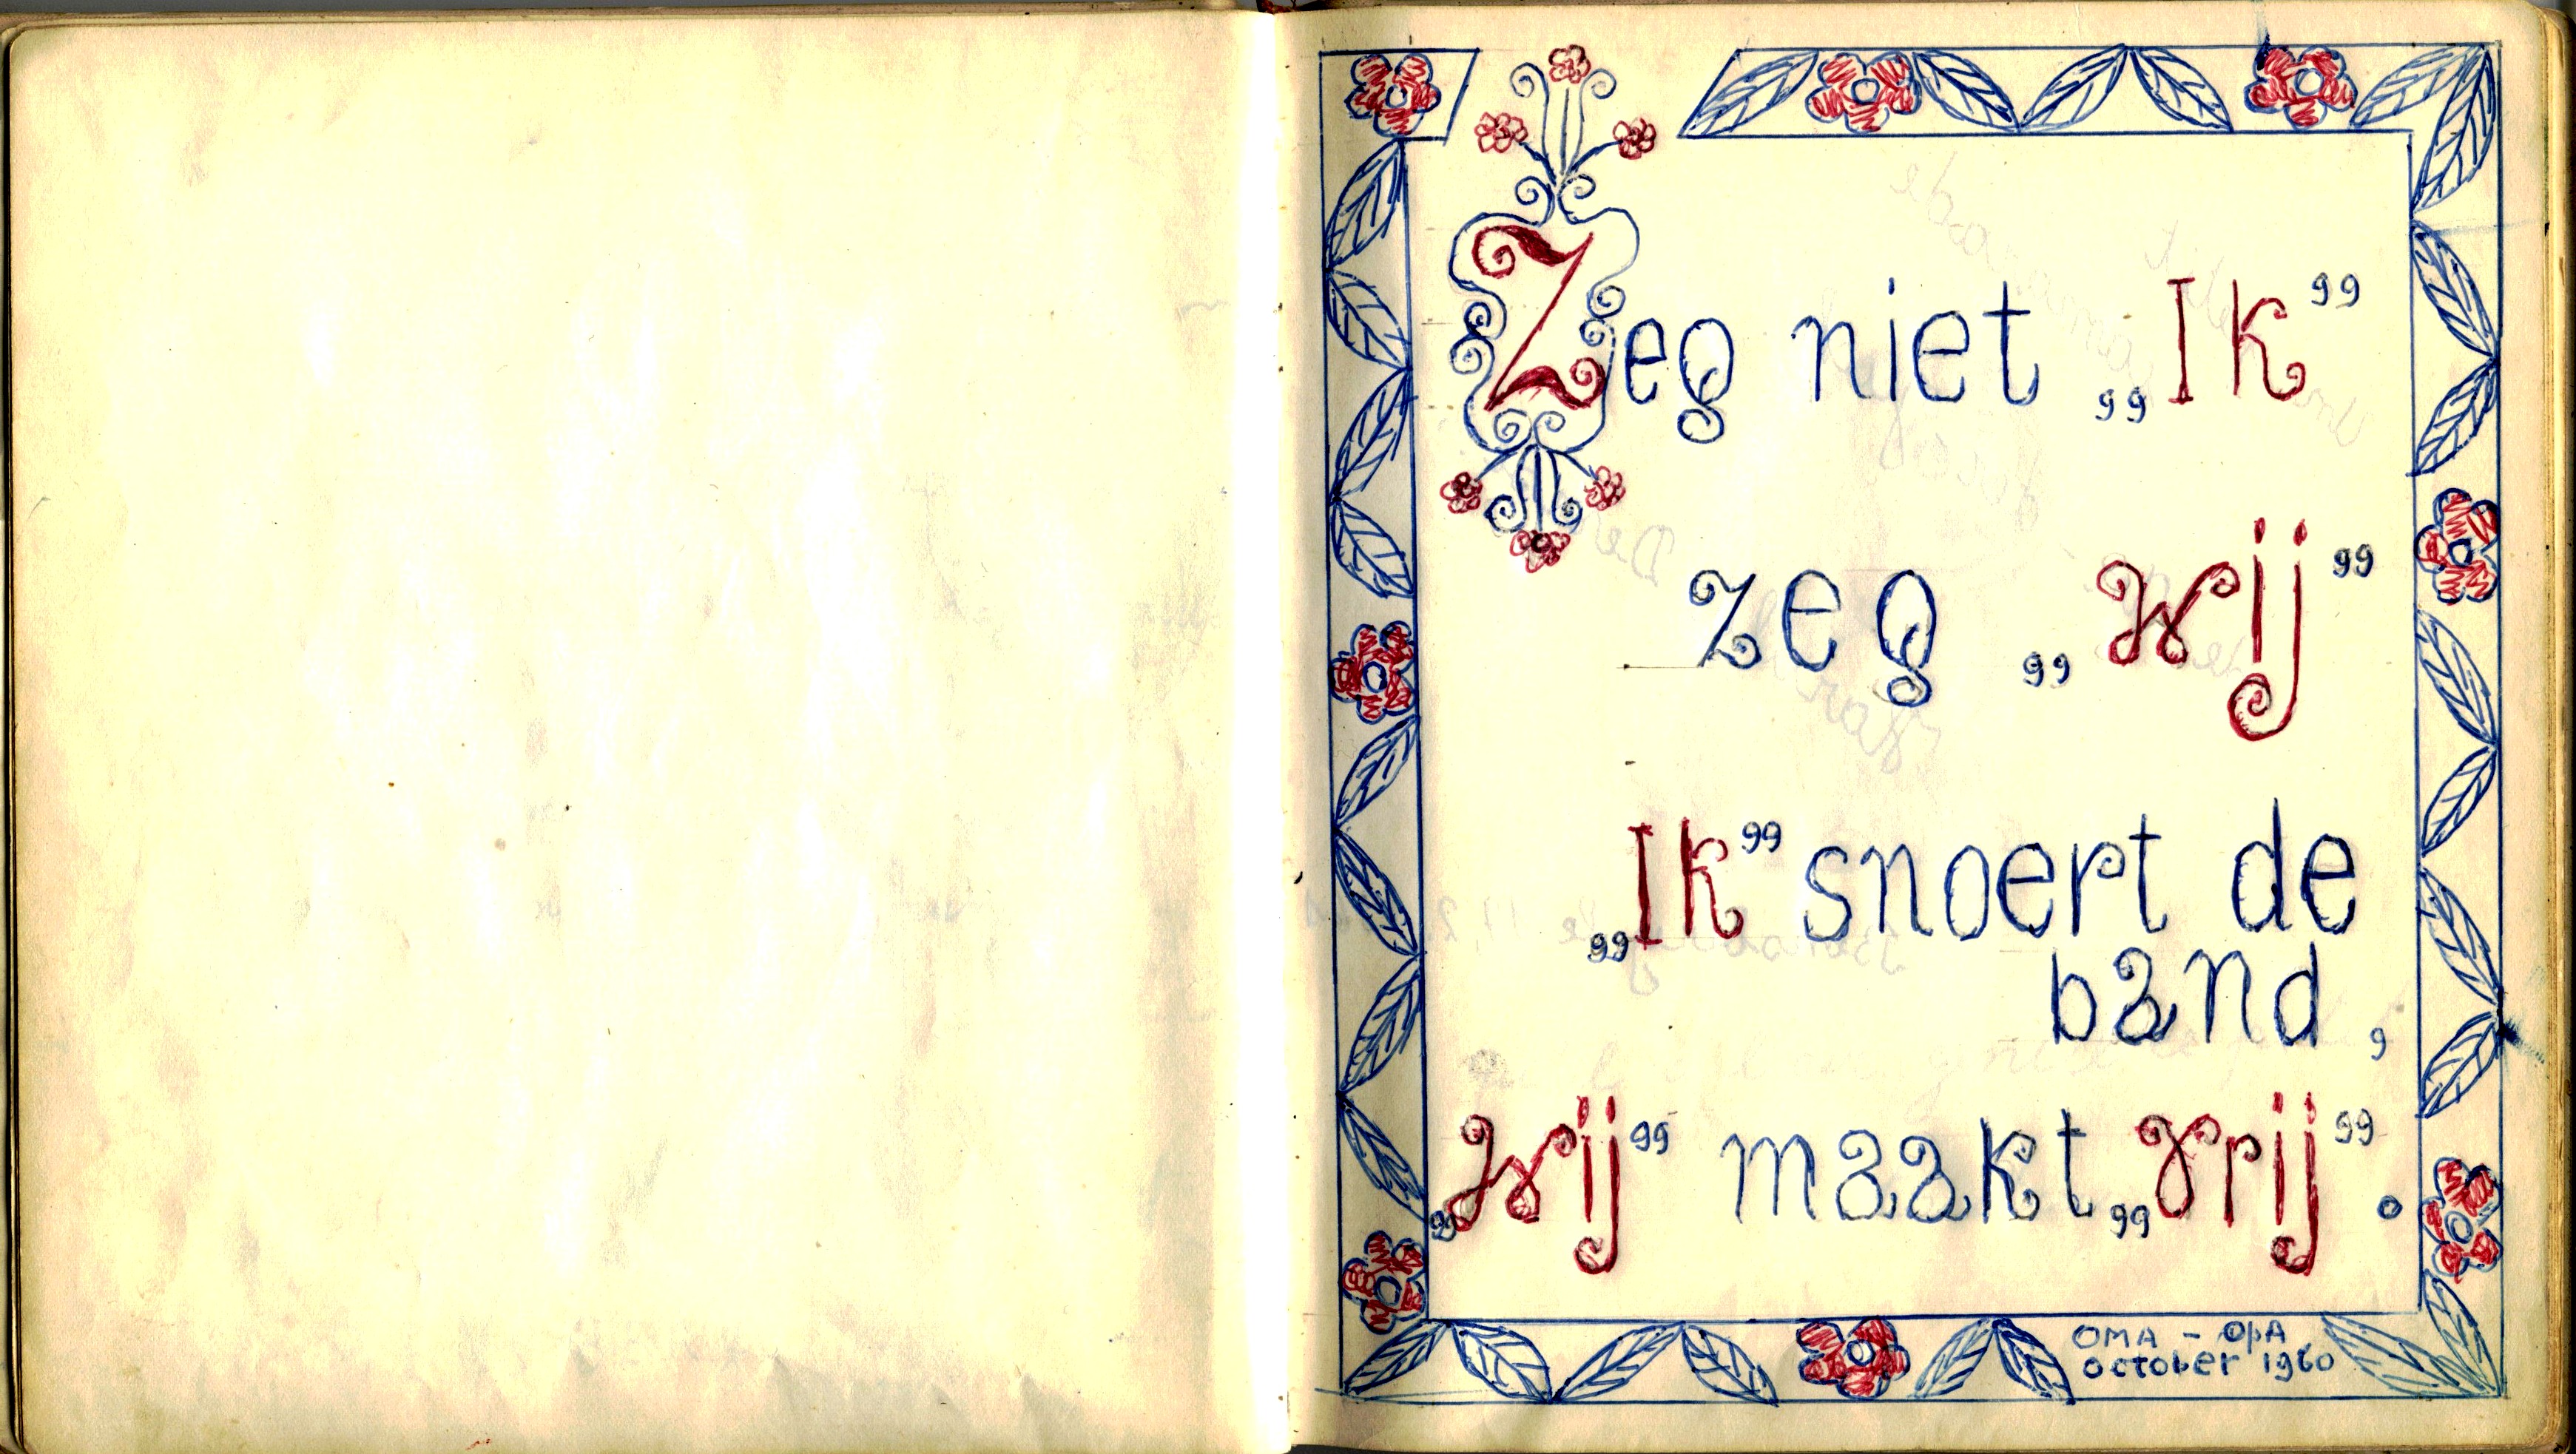 Zeg niet „Ik”
zeg „Wij”
„Ik” snoert de
band,
„Wij” maakt „Vrij”.
OMA - OpA
october 1960